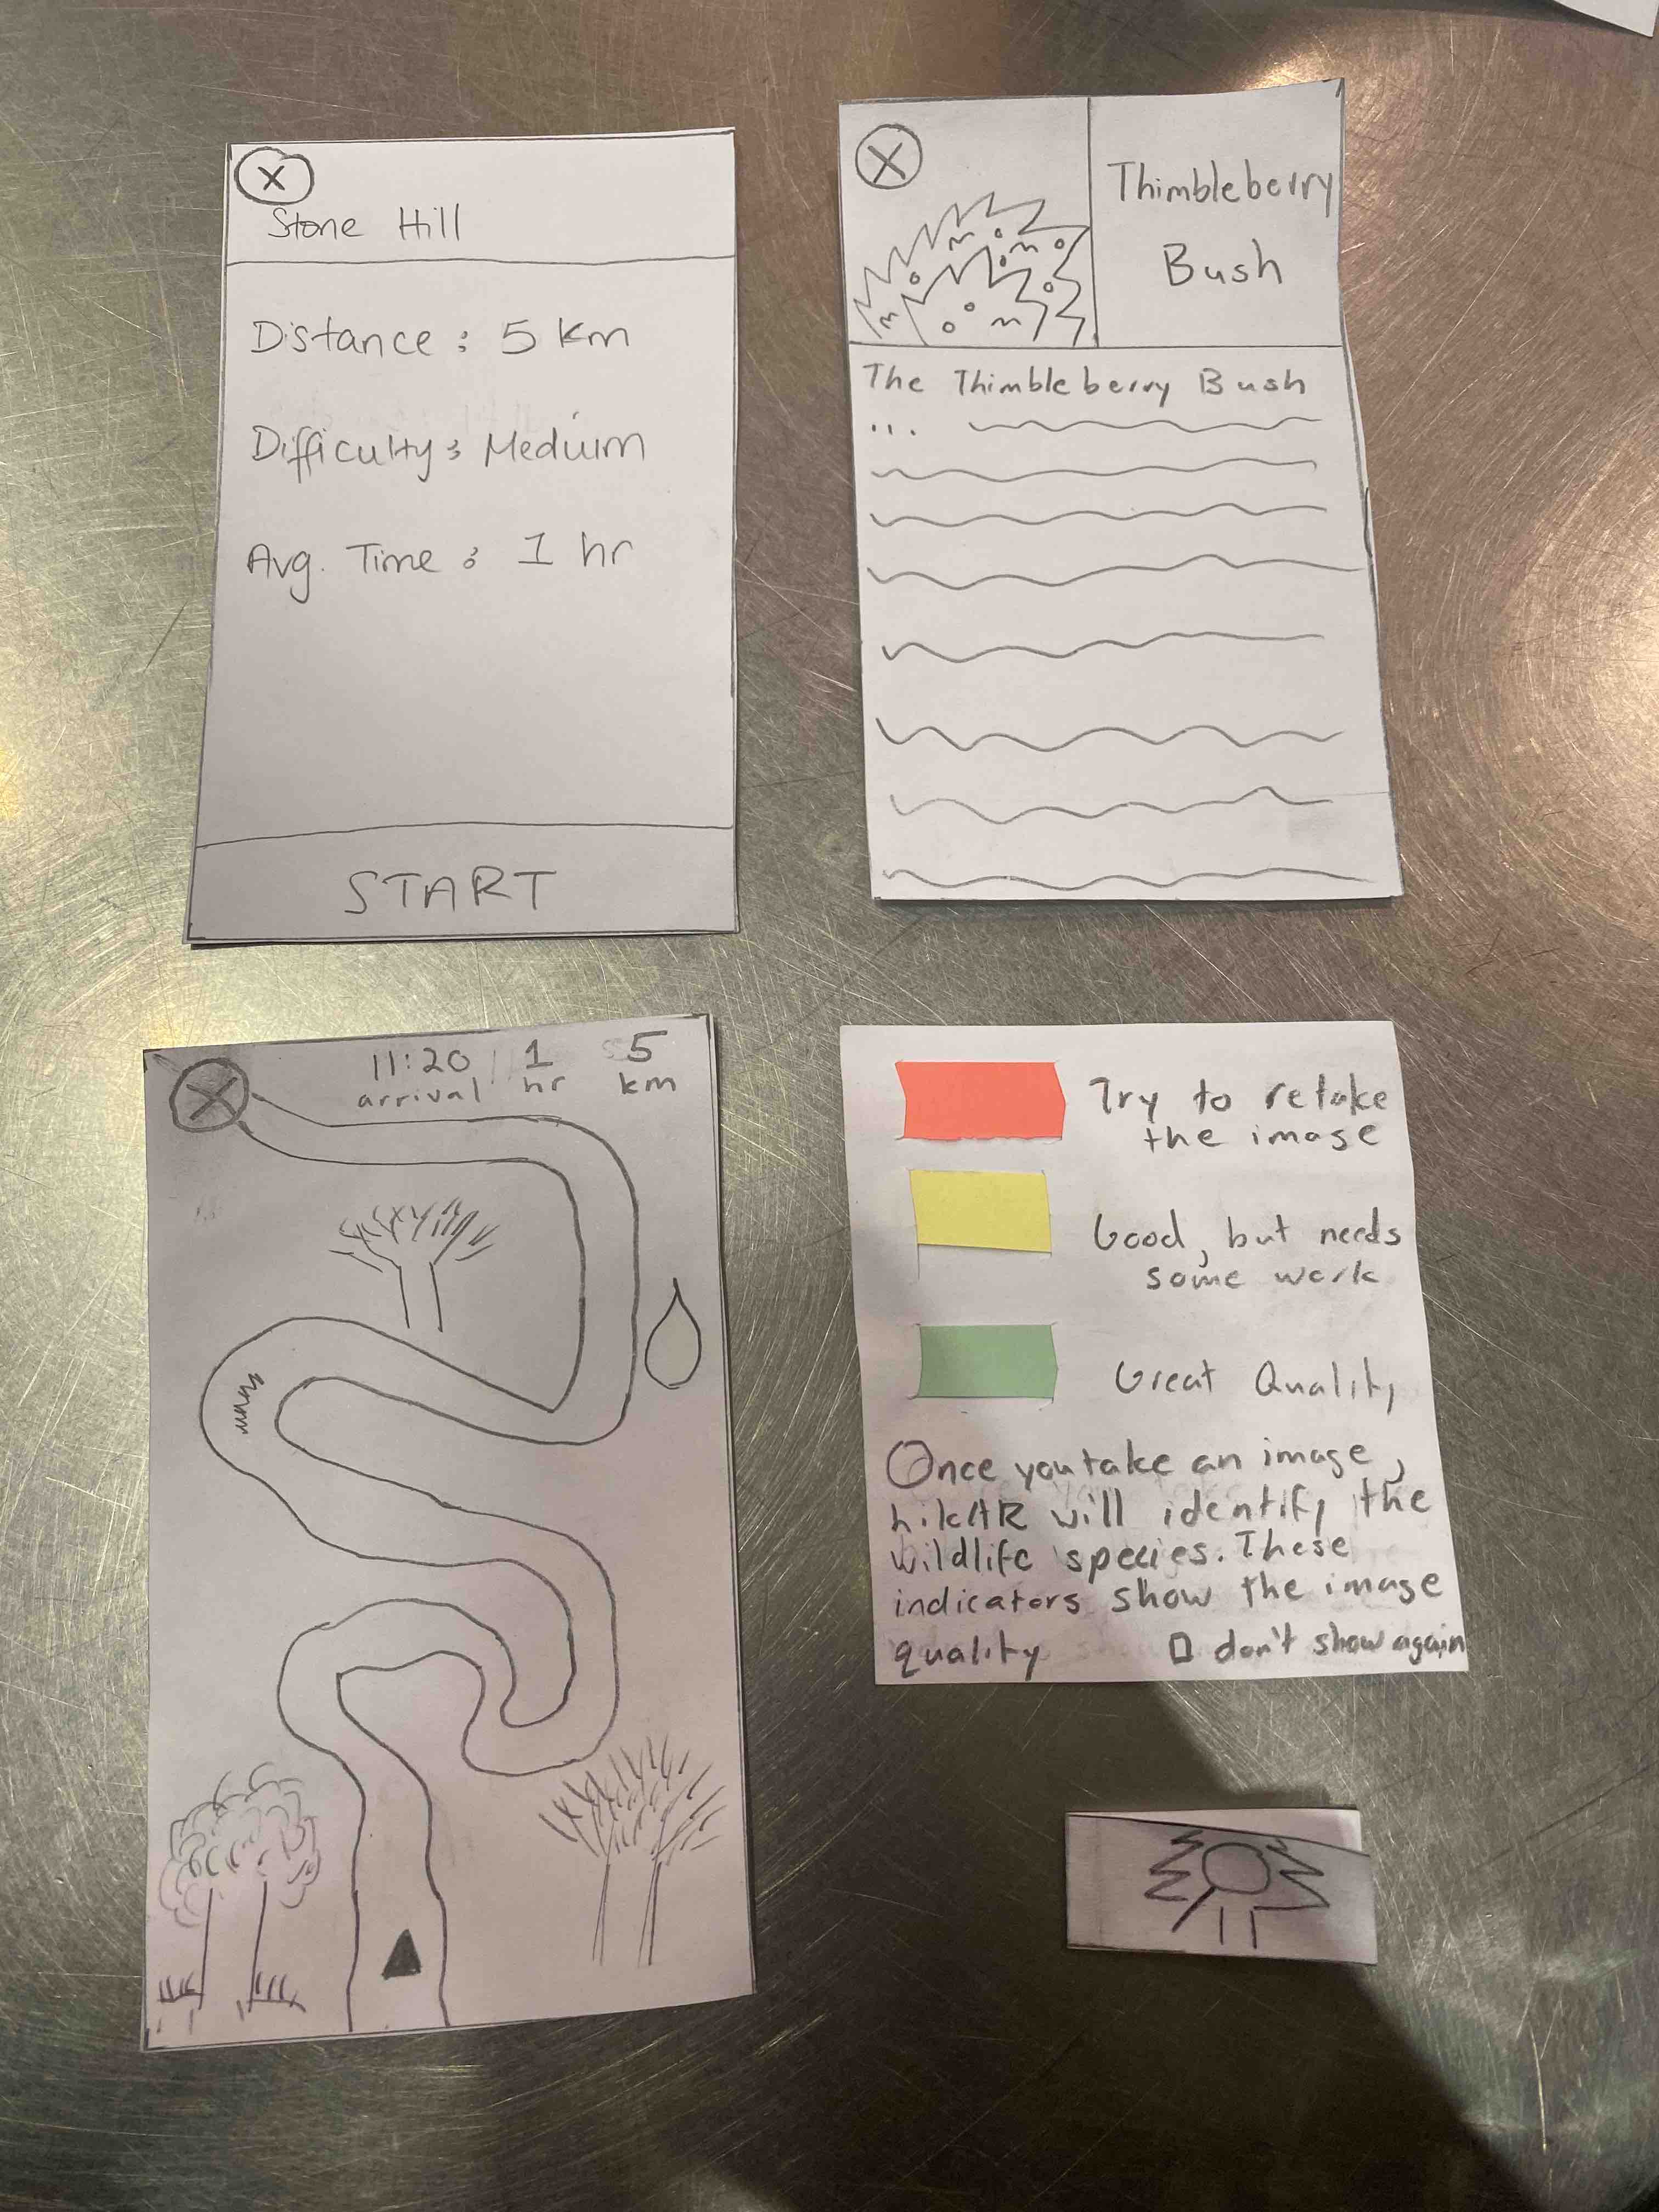 X
Stone Hill
Distance: 5 km
Difficulty: Meduim
Avg. Time: 1 hr
START
X
Thimbleberry
Bush
The Thimbleberry Bush
...
X
11:20 1 5
arrival hr km
Try to retake
the image
Good, but needs
some work
Great Quality
Once you take an image,
hikAR will identify the
wildlife species. These
indicators show the image
quality don't show again